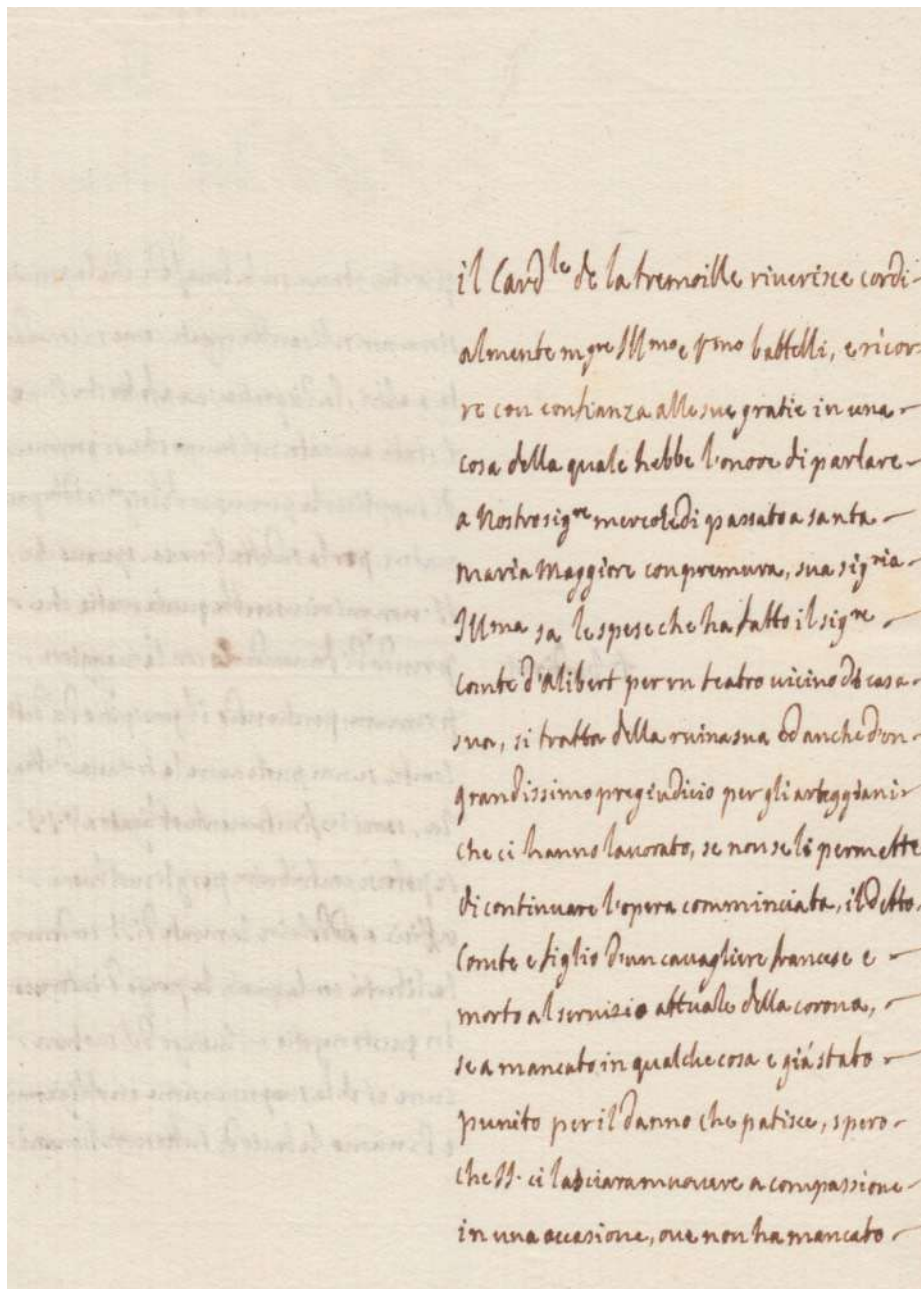 il Card.le de la tremoille riuerisce cordi-
almente mgre Illmo e Rmo battelli, e ricor-
re con confianza alle sue gratie in una
cosa della quale hebbe l'onore di parlare
a Nostro sigre mercoledi passato a santa
maria Maggiore con premura, sua sigria
Illma sa le spese che ha fatto il sigre
Comte d'Alibert per un teatro uicino di casa
sua, si tratta della ruina sua ed anche d'un
grandissimo pregiudicio per gli arteggiani
che ci hanno lauorato, se non se li permette
di continuare l'opera comminciata, il detto
Comte e figlio d'un cauagliere francese e
morto al seruizio attuale della corona,
se a mancato in qualche cosa e giá stato
punito per il danno che patisce, spero
che SS. ci lasciara muouere a compassione
in una occasione, oue non ha mancato